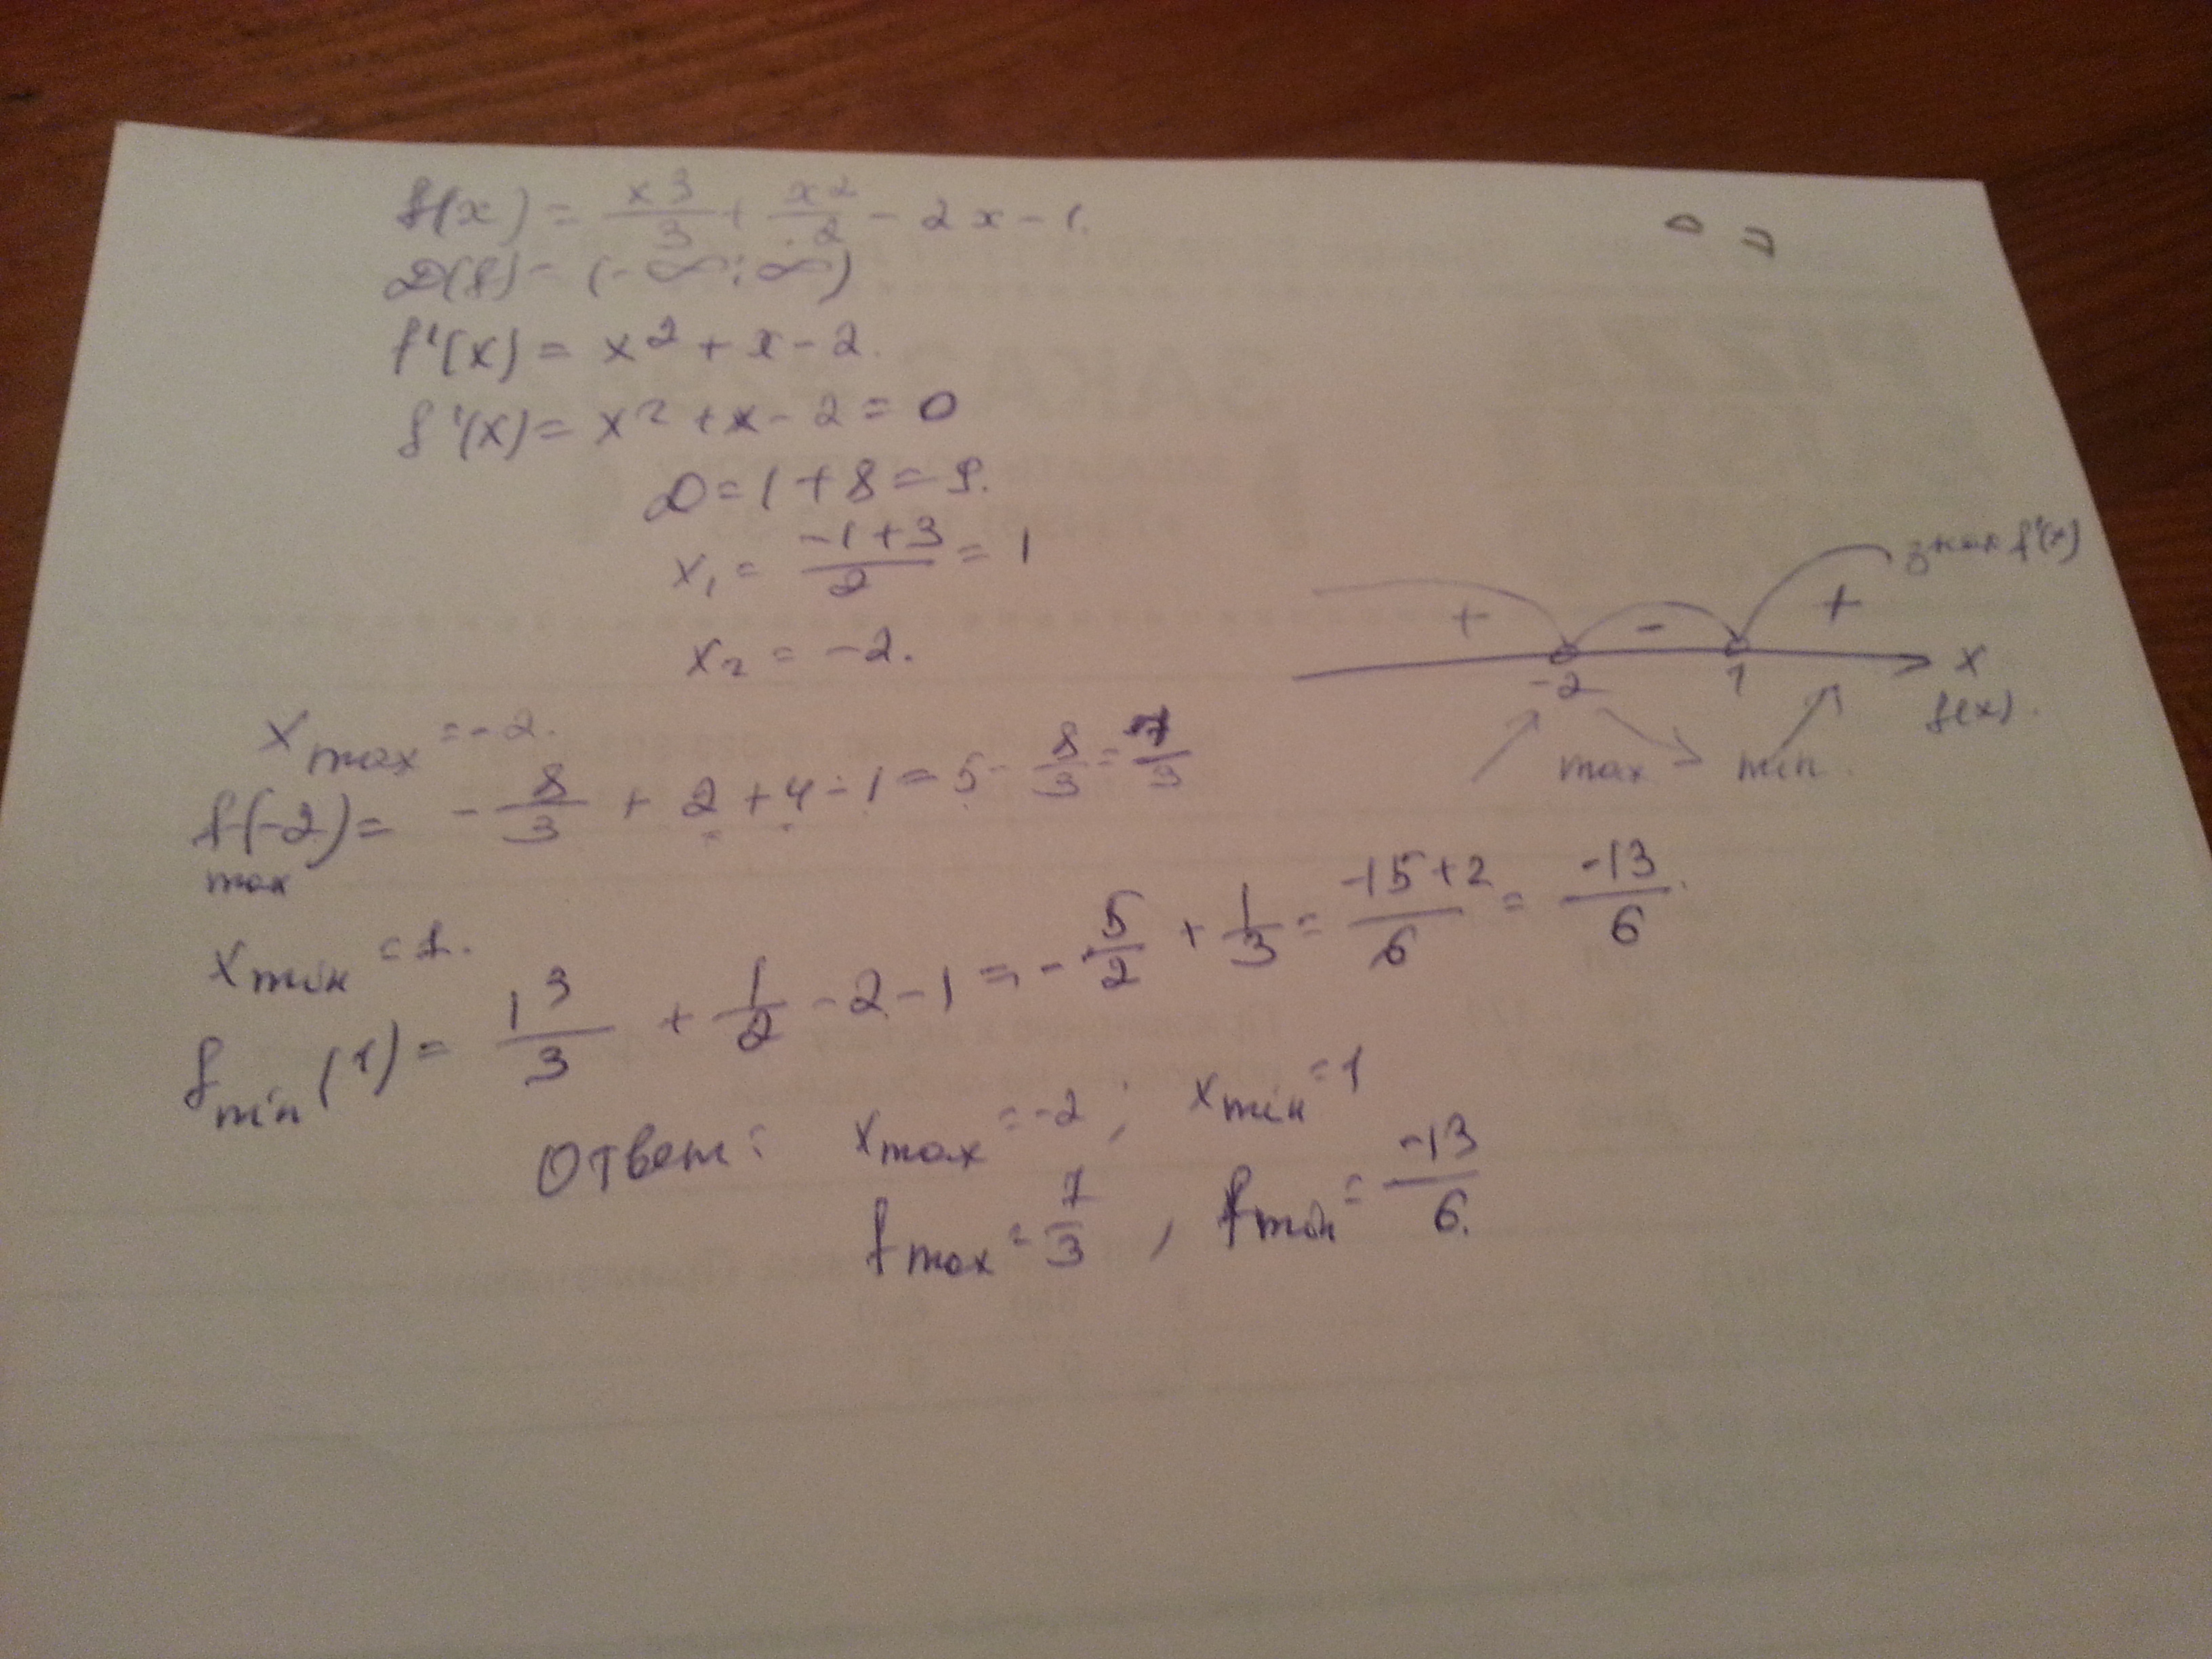 f(x) = x3/3 + x2/2 - 2x - 1.
D(f) - (-∞; ∞)
f'(x) = x2 + x - 2.
f'(x) = x2 + x - 2 = 0
D = 1 + 8 = 9.
x1 = (-1+3)/2 = 1
x2 = -2.
знак f'(x)
+ - +
-2 1 x
f(x).
max min.
xmax = -2.
f(-2) = -8/3 + 2 + 4 - 1 = 5 - 8/3 = 7/3
max
xmin = 1.
fmin(1) = 1 3/3 + 1/2 - 2 - 1 = -5/2 + 1/3 = (-15+2)/6 = -13/6.
Ответ: xmax = -2; xmin = 1
fmax = 7/3, fmin = -13/6.